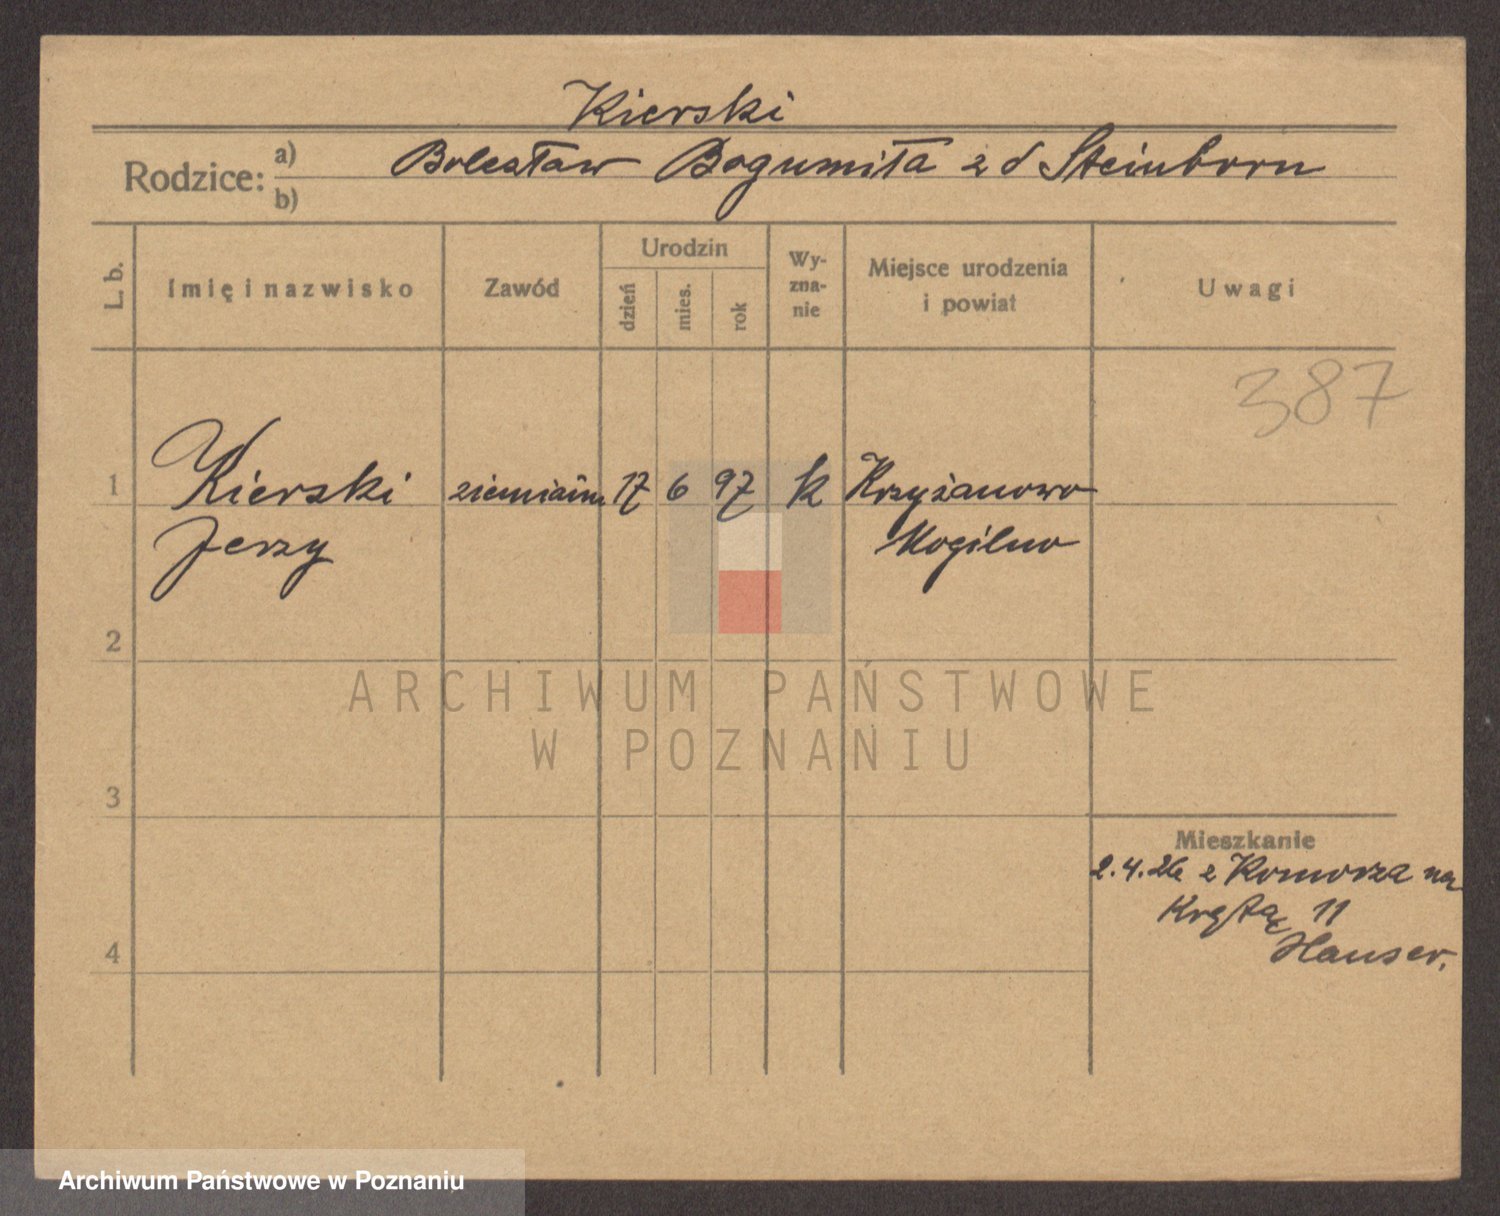 Kierski
Rodzice: a) Bolesław Bogumiła z d Steinborn
b)
L. b. Imię i nazwisko Zawód Urodzin dzień mies. rok Wy-zna-nie Miejsce urodzenia i powiat Uwagi
387
1 Kierski ziemianin 17 6 97 k Krzyżanowo
Jerzy Mogilno
2
ARCHIWUM PAŃSTWOWE
W POZNANIU
3
Mieszkanie
2.4.26 z Komorza na
Krętą 11
Hauser.
4
Archiwum Państwowe w Poznaniu